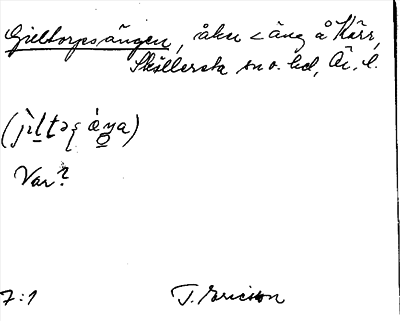 Gieltorpsängen, åker < äng å Kärr,
Sköllersta sn o. hd, Ör. l.
Var?
7:1
T. Ericsson